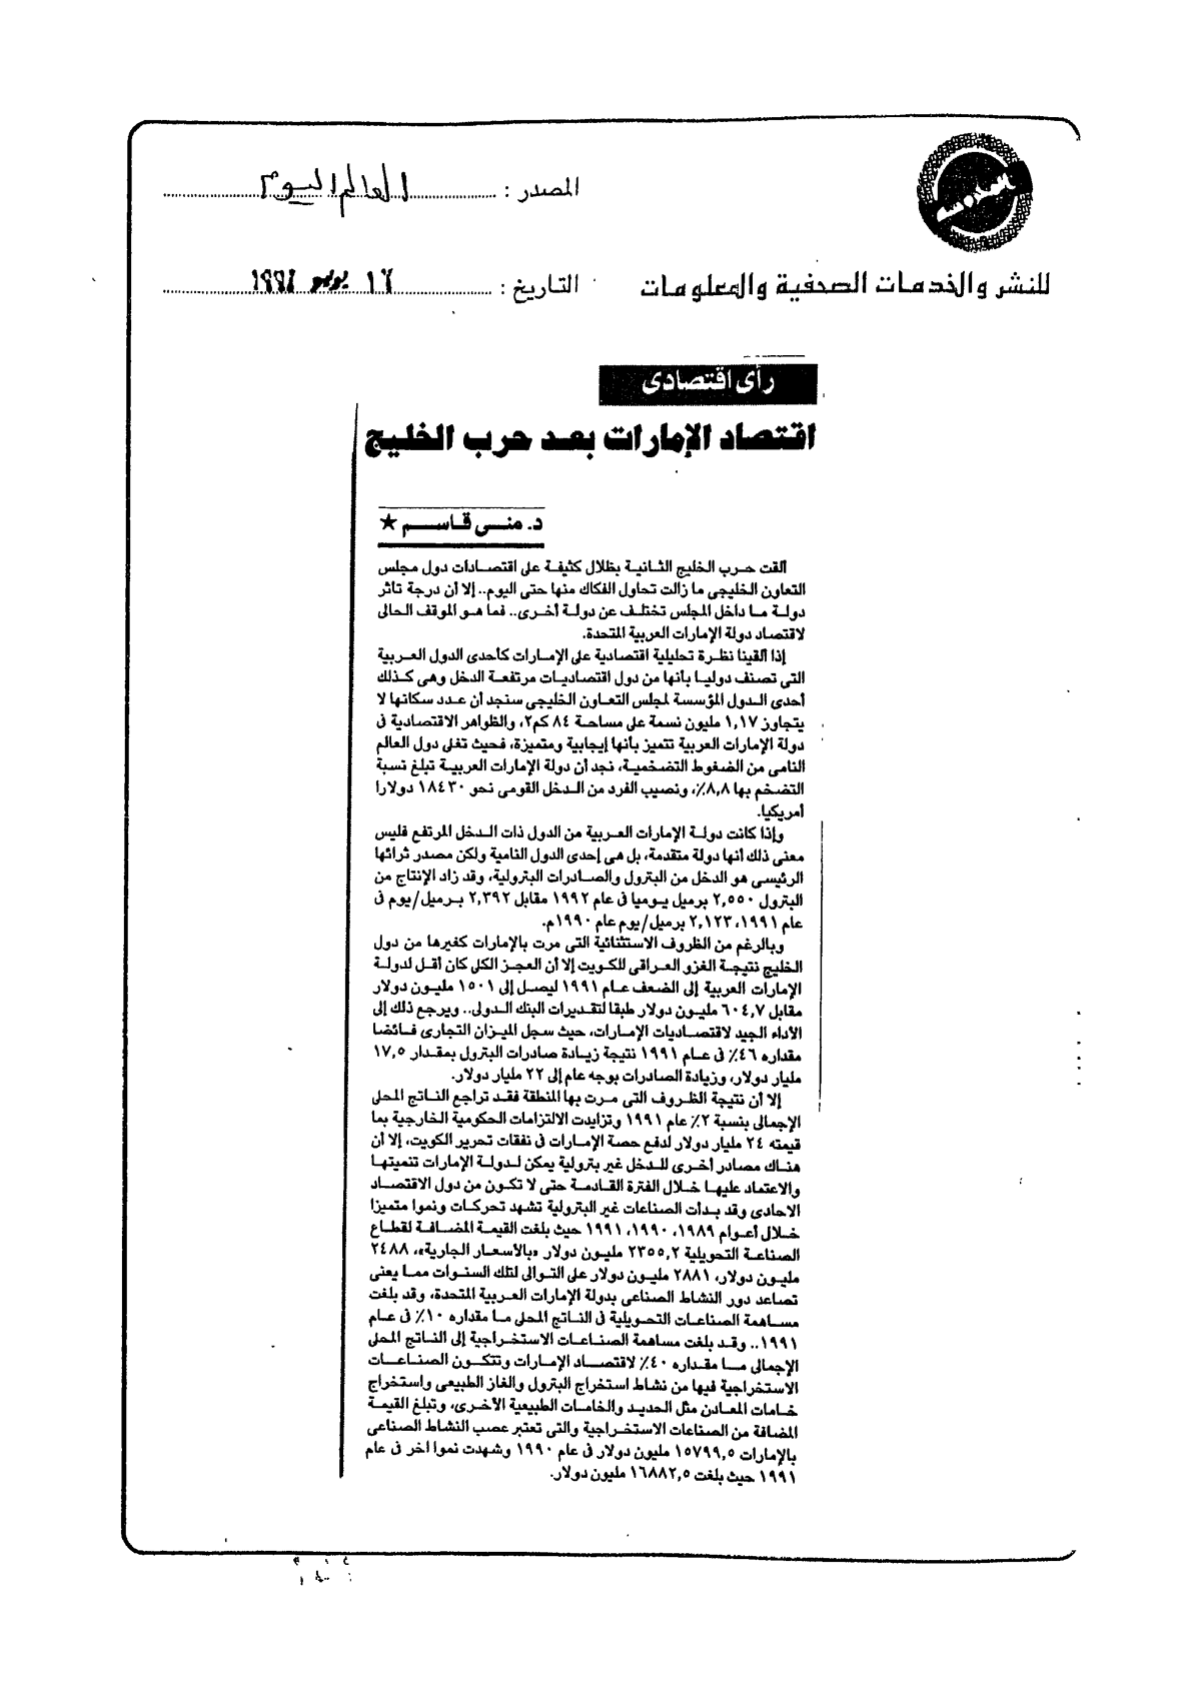 المصدر : العالم اليوم
للنشر والخدمات الصحفية والمعلومات
التاريخ : ١٦ يونيو
رأى اقتصادى
اقتصاد الإمارات بعد حرب الخليج
د. منى قاسم ★
ألقت حرب الخليج الثانية بظلال كثيفة على اقتصادات دول مجلس
التعاون الخليجى ما زالت تحاول الفكاك منها حتى اليوم.. إلا أن درجة تأثر
دولة ما داخل المجلس تختلف عن دولة أخرى.. فما هو الموقف الحالى
لاقتصاد دولة الإمارات العربية المتحدة.
إذا ألقينا نظرة تحليلية اقتصادية على الإمارات كأحدى الدول العربية
التى تصنف دوليا بأنها من دول اقتصاديات مرتفعة الدخل وهى كذلك
أحدى الدول المؤسسة لمجلس التعاون الخليجى سنجد أن عدد سكانها لا
يتجاوز ١,١٧ مليون نسمة على مساحة ٨٤ كم٢، والظواهر الاقتصادية فى
دولة الإمارات العربية تتميز بأنها إيجابية ومتميزة، فحيث تغلى دول العالم
النامى من الضغوط التضخمية، نجد أن دولة الإمارات العربية تبلغ نسبة
التضخم بها ٨,٨٪، ونصيب الفرد من الدخل القومى نحو ١٨٤٣٠ دولارا
أمريكيا.
وإذا كانت دولة الإمارات العربية من الدول ذات الدخل المرتفع فليس
معنى ذلك أنها دولة متقدمة، بل هى إحدى الدول النامية ولكن مصدر ثرائها
الرئيسى هو الدخل من البترول والصادرات البترولية، وقد زاد الإنتاج من
البترول ٢,٥٥٠ برميل يوميا فى عام ١٩٩٢ مقابل ٢,٣٩٢ برميل/يوم فى
عام ١٩٩١، ٢,١٢٣ برميل/يوم عام ١٩٩٠م.
وبالرغم من الظروف الاستثنائية التى مرت بالإمارات كغيرها من دول
الخليج نتيجة الغزو العراقى للكويت إلا أن العجز الكلى كان أقل لدولة
الإمارات العربية إلى الضعف عام ١٩٩١ ليصل إلى ١٥٠١ مليون دولار
مقابل ٦٠٤,٧ مليون دولار طبقا لتقديرات البنك الدولى.. ويرجع ذلك إلى
الأداء الجيد لاقتصاديات الإمارات، حيث سجل الميزان التجارى فائضا
مقداره ٤٦٪ فى عام ١٩٩١ نتيجة زيادة صادرات البترول بمقدار ١٧,٥
مليار دولار، وزيادة الصادرات بوجه عام إلى ٢٢ مليار دولار.
إلا أن نتيجة الظروف التى مرت بها المنطقة فقد تراجع الناتج المحلى
الإجمالى بنسبة ٢٪ عام ١٩٩١ وتزايدت الالتزامات الحكومية الخارجية بما
قيمته ٢٤ مليار دولار لدفع حصة الإمارات فى نفقات تحرير الكويت، إلا أن
هناك مصادر أخرى للدخل غير بترولية يمكن لدولة الإمارات تنميتها
والاعتماد عليها خلال الفترة القادمة حتى لا تكون من دول الاقتصاد
الاحادى وقد بدأت الصناعات غير البترولية تشهد تحركات ونموا متميزا
خلال أعوام ١٩٨٩، ١٩٩٠، ١٩٩١ حيث بلغت القيمة المضافة لقطاع
الصناعة التحويلية ٢٣٥٥,٢ مليون دولار «بالأسعار الجارية»، ٢٤٨٨
مليون دولار، ٢٨٨١ مليون دولار على التوالى لتلك السنوات مما يعنى
تصاعد دور النشاط الصناعى بدولة الإمارات العربية المتحدة، وقد بلغت
مساهمة الصناعات التحويلية فى الناتج المحلى ما مقداره ١٠٪ فى عام
١٩٩١.. وقد بلغت مساهمة الصناعات الاستخراجية إلى الناتج المحلى
الإجمالى ما مقداره ٤٠٪ لاقتصاد الإمارات وتتكون الصناعات
الاستخراجية فيها من نشاط استخراج البترول والغاز الطبيعى واستخراج
خامات المعادن مثل الحديد والخامات الطبيعية الأخرى، وتبلغ القيمة
المضافة من الصناعات الاستخراجية والتى تعتبر عصب النشاط الصناعى
بالإمارات ١٥٧٩٩,٥ مليون دولار فى عام ١٩٩٠ وشهدت نموا آخر فى عام
١٩٩١ حيث بلغت ١٦٨٨٢,٥ مليون دولار.